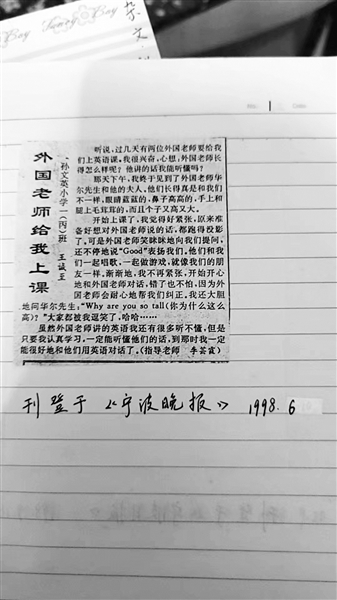 杂文
外国老师给我上课
孙文英小学一(丙)班 王诚至
听说,过几天有两位外国老师要给我
们上英语课,我很兴奋,心想,外国老师长
得怎么样呢?他讲的话我能听懂吗?
那天下午,我终于见到了外国老师华
尔先生和他的夫人。他们长得真是和我们
不一样,眼睛蓝蓝的,鼻子高高的,手上和
腿上毛茸茸的,而且个子又高又大。
开始上课了,我觉得好紧张,原来准
备好想对外国老师说的话,都跑得没影
了,可是外国老师笑眯眯地向我们提问,
还不停地说“Good”表扬我们。他们和我
们一起唱歌,一起做游戏,就像我们的朋
友一样。渐渐地,我不再紧张,开始开心
地和外国老师对话,错了也不怕,因为外
国老师会耐心地帮我们纠正。我还大胆
地问华尔先生:“Why are you so tall(你为什么这么
高)?”大家都被我逗笑了,哈哈……
虽然外国老师讲的英语我还有很多听不懂,但是
只要我认真学习,一定能听懂他们的话,到那时我一定
能很好地和他们用英语对话了。(指导老师 李芸霞)
刊登于《宁波晚报》 1998.6